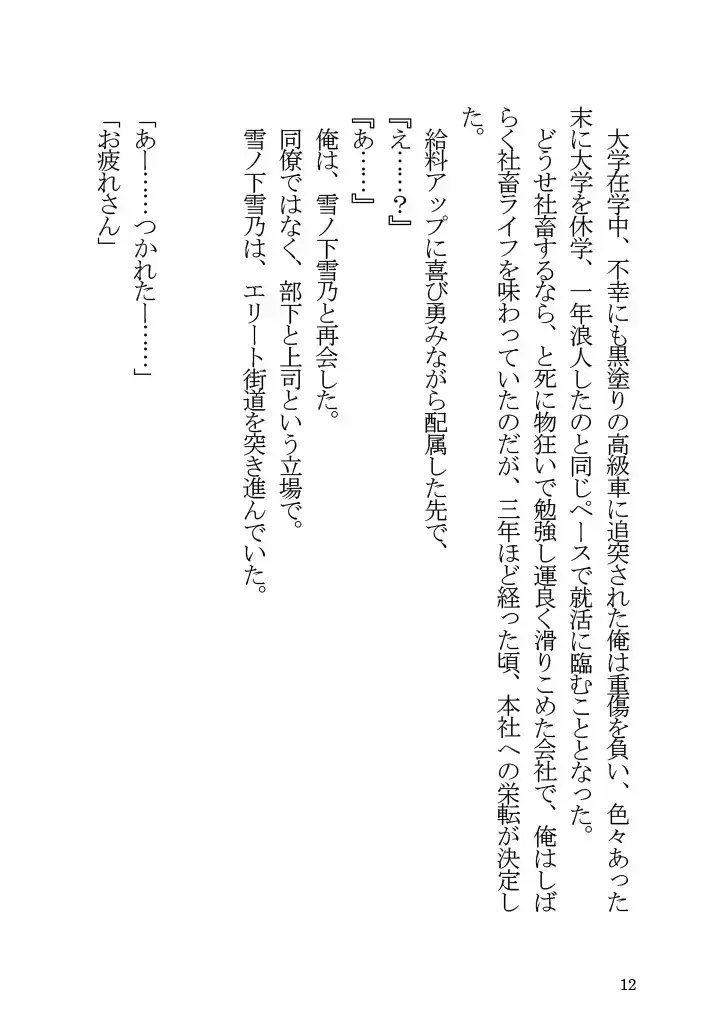 大学在学中、不幸にも黒塗りの高級車に追突された俺は重傷を負い、色々あった
末に大学を休学、一年浪人したのと同じペースで就活に臨むこととなった。
どうせ社畜するなら、と死に物狂いで勉強し運良く滑りこめた会社で、俺はしば
らく社畜ライフを味わっていたのだが、三年ほど経った頃、本社への栄転が決定し
た。
給料アップに喜び勇みながら配属した先で、
『え……？』
『あ……』
俺は、雪ノ下雪乃と再会した。
同僚ではなく、部下と上司という立場で。
雪ノ下雪乃は、エリート街道を突き進んでいた。
「あー……つかれたー……」
「お疲れさん」
12